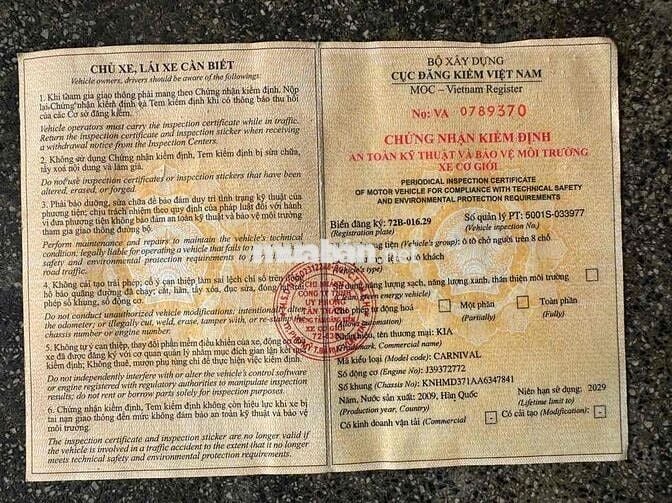 CHỦ XE, LÁI XE CẦN BIẾT
Vehicle owners, drivers should be aware of the followings:
1. Khi tham gia giao thông phải mang theo Chứng nhận kiểm định. Nộp
lại Chứng nhận kiểm định và Tem kiểm định khi có thông báo thu hồi
của các Cơ sở đăng kiểm.
Vehicle operators must carry the inspection certificate while in traffic.
Return the inspection certificate and inspection sticker when receiving
a withdrawal notice from the Inspection Centers.
2. Không sử dụng Chứng nhận kiểm định, Tem kiểm định bị sửa chữa,
tẩy xoá nội dung và làm giả.
Do not use inspection certificates or inspection stickers that have been
altered, erased, or forged.
3. Phải bảo dưỡng, sửa chữa để bảo đảm duy trì tình trạng kỹ thuật của
phương tiện; chịu trách nhiệm theo quy định của pháp luật đối với hành
vi đưa phương tiện không bảo đảm an toàn kỹ thuật và bảo vệ môi trường
tham gia giao thông đường bộ.
Perform maintenance and repairs to maintain the vehicle's technical
condition; legally liable for operating a vehicle that fails to
safety and environmental protection requirements to
road traffic.
4. Không cải tạo trái phép; cố ý can thiệp làm sai lệch chỉ số trên đồng
hồ báo quãng đường đã chạy; cắt, hàn, tẩy xóa, đục sửa, đóng
phép số khung, số động cơ.
Do not conduct unauthorized vehicle modifications; intentionally alter
the odometer; or illegally cut, weld, erase, tamper with, or re-stamp
chassis number or engine number.
5. Không tự ý can thiệp, thay đổi phần mềm điều khiển của xe, động cơ
xe đã được đăng ký với cơ quan quản lý nhằm mục đích gian lận kết quả
kiểm định; Không thuê, mượn phụ tùng chỉ để thực hiện việc kiểm định.
Do not independently interfere with or alter the vehicle's control software
or engine registered with regulatory authorities to manipulate inspection
results; do not rent or borrow parts solely for inspection purposes.
6. Chứng nhận kiểm định, Tem kiểm định không còn hiệu lực khi xe bị
tai nạn giao thông đến mức không đảm bảo an toàn kỹ thuật và bảo vệ
môi trường.
The inspection certificate and inspection sticker are no longer valid if
the vehicle is involved in a traffic accident to the extent that it no longer
meets technical safety and environmental protection requirements.
BỘ XÂY DỰNG
CỤC ĐĂNG KIỂM VIỆT NAM
MOC - Vietnam Register
No: VA 0789370
CHỨNG NHẬN KIỂM ĐỊNH
AN TOÀN KỸ THUẬT VÀ BẢO VỆ MÔI TRƯỜNG
XE CƠ GIỚI
PERIODICAL INSPECTION CERTIFICATE
OF MOTOR VEHICLE FOR COMPLIANCE WITH TECHNICAL SAFETY
AND ENVIRONMENTAL PROTECTION REQUIREMENTS
Biển đăng ký: 72B-016.29 Số quản lý PT: 5001S-033977
(Registration plate) (Vehicle inspection No.)
phương tiện (Vehicle's group): ô tô chở người trên 8 chỗ
ô tô khách
(Vehicle's type)
sử dụng năng lượng sạch, năng lượng xanh, thân thiện môi trường
green energy vehicle)
phép tự động hoá Một phần Toàn phần
(Automation) (Partially) (Fully)
Nhãn hiệu, tên thương mại: KIA
(Trademark, Commercial name)
Mã kiểu loại (Model code): CARNIVAL
Số động cơ (Engine No): J39372772
Số khung (Chassis No): KNHMD371AA6347841
Năm, Nước sản xuất: 2009, Hàn Quốc Niên hạn sử dụng: 2029
(Production year, Country) (Lifetime limit to)
Có kinh doanh vận tải (Commercial Có cải tạo (Modification):
muaban